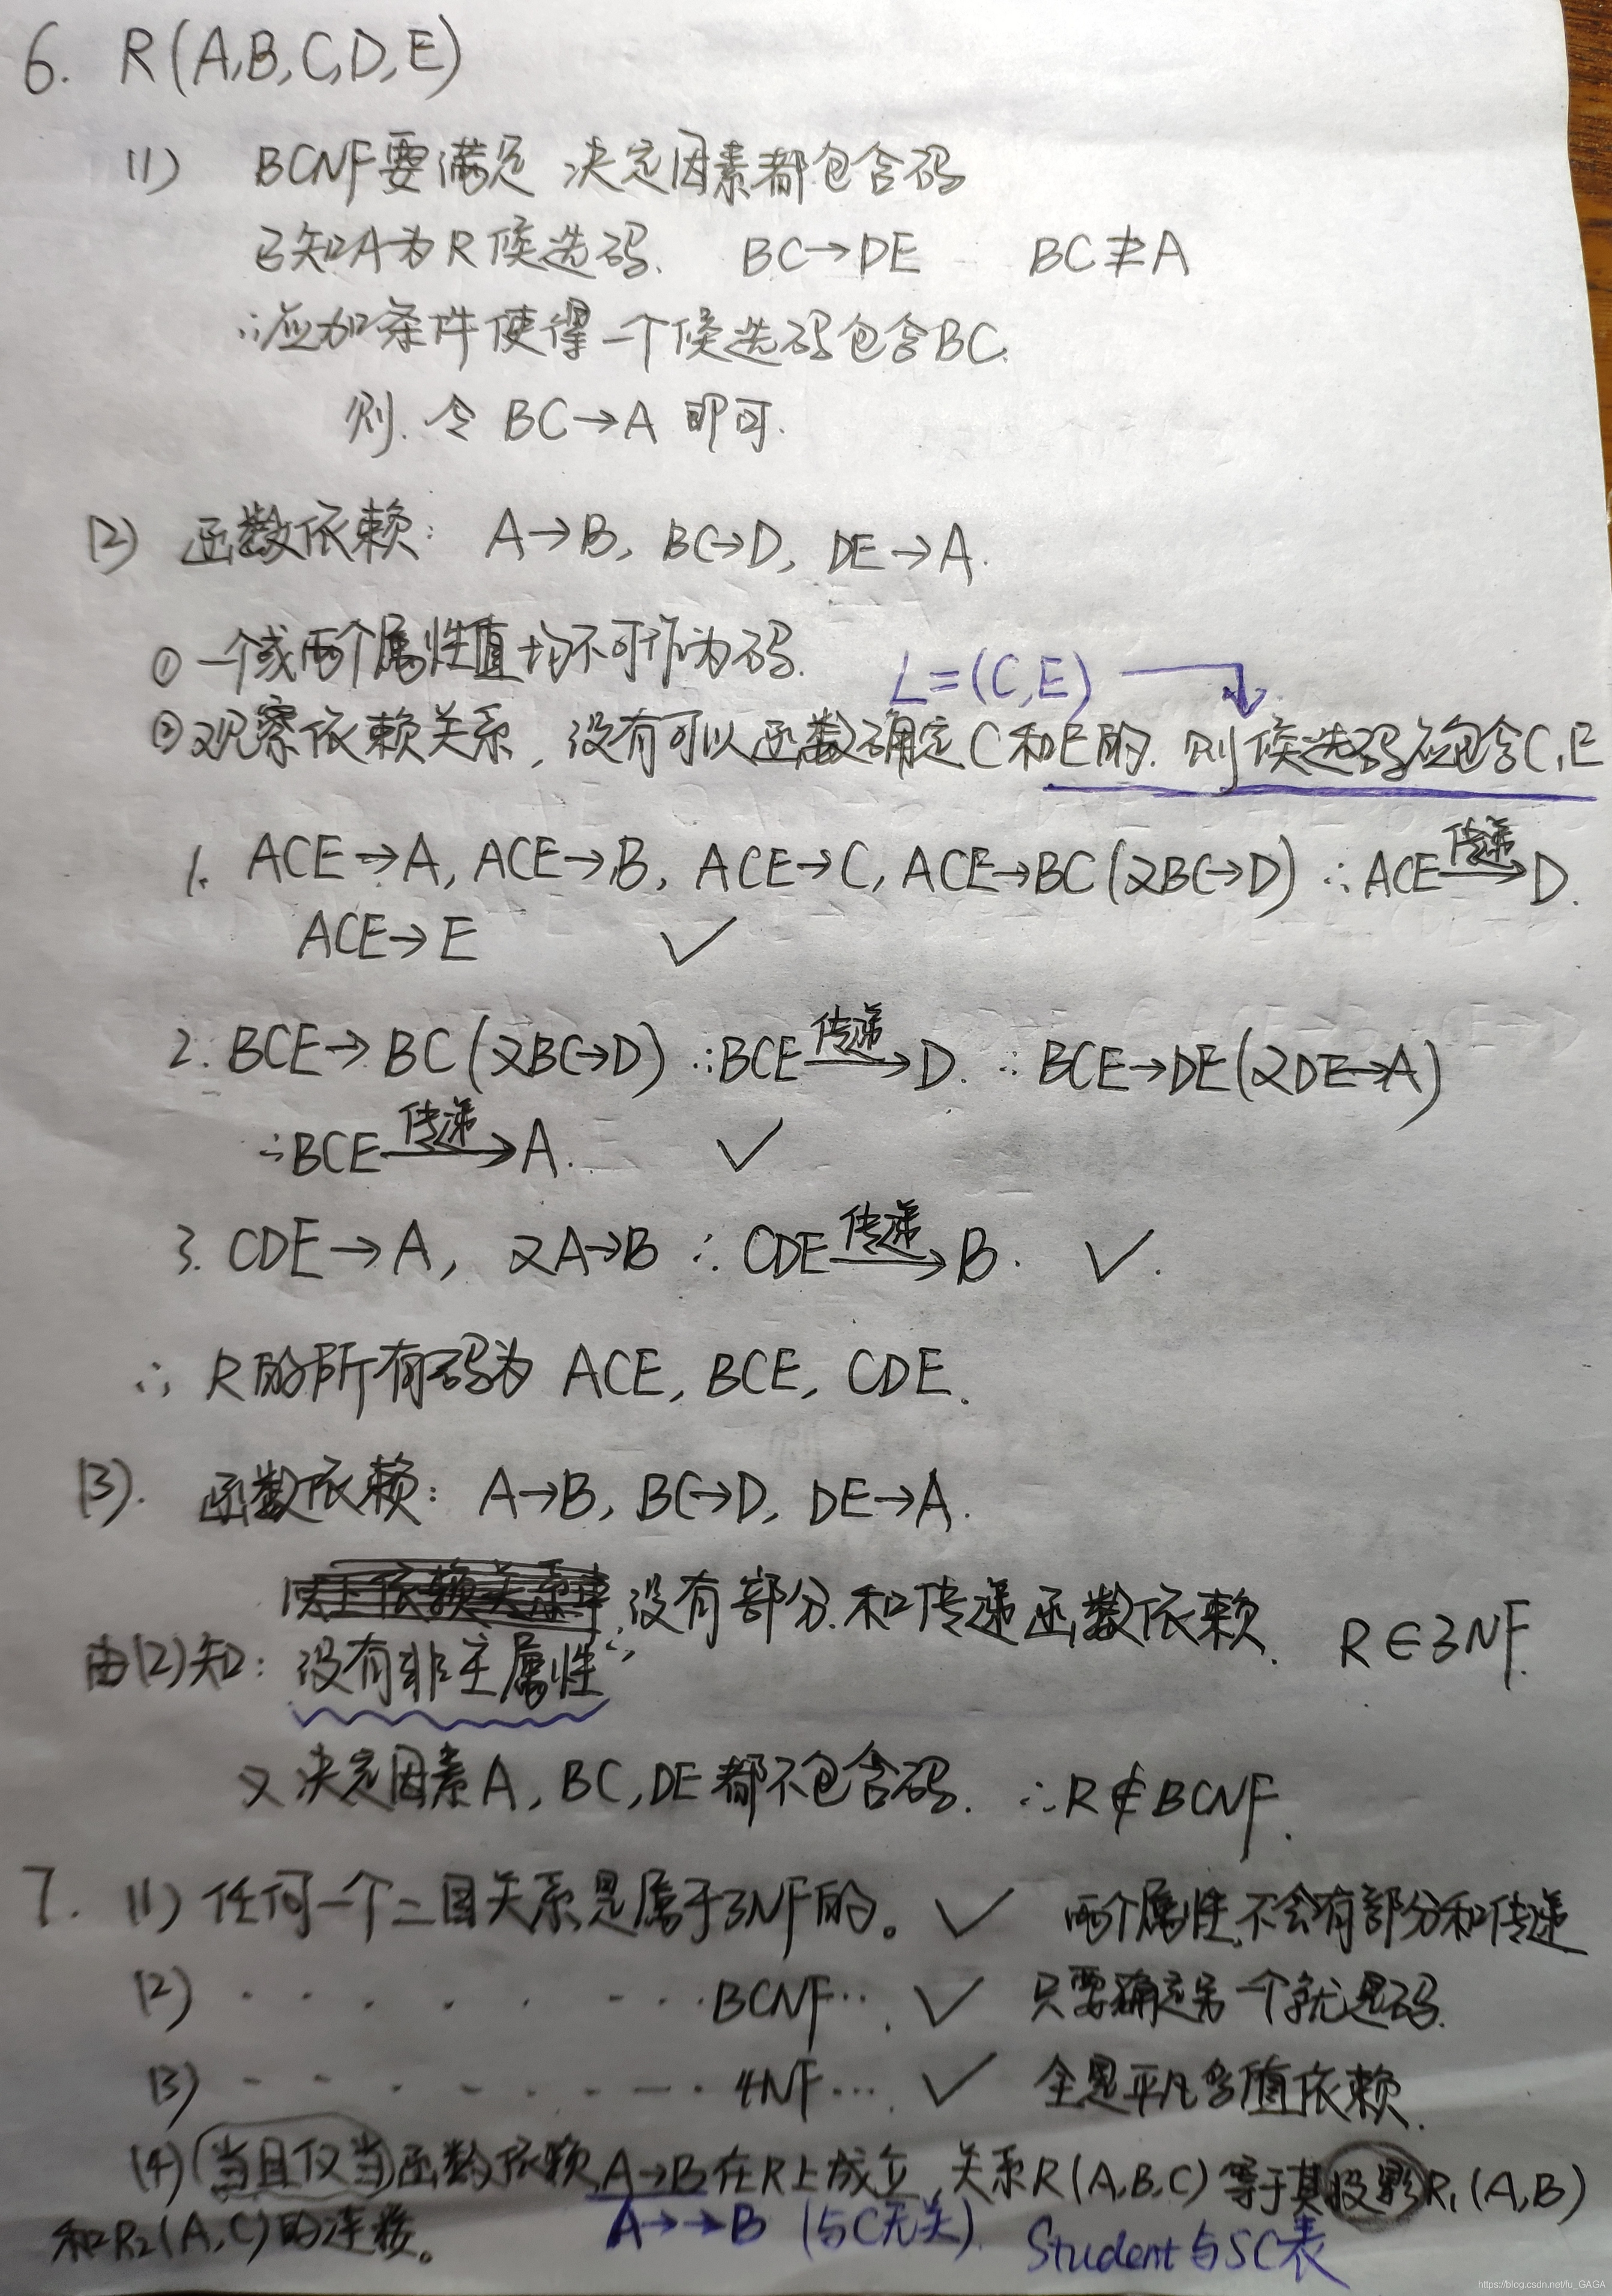 6. R(A,B,C,D,E)
(1) BCNF要满足 决定因素都包含码
已知A为R候选码. BC→DE BC⊉A
∴应加条件使得一个候选码包含BC.
则.令 BC→A 即可.
(2) 函数依赖: A→B, BC→D, DE→A.
① 一个或两个属性值均不可作为码.
L=(C,E)
②观察依赖关系,没有可以函数确定C和E的.则候选码应包含C,E
1. ACE→A, ACE→B, ACE→C, ACE→BC(又BC→D) ∴ACE传递→D.
ACE→E ✓
2. BCE→BC(又BC→D) ∴BCE传递→D. ∴BCE→DE(又DE→A)
∴BCE传递→A. ✓
3. CDE→A, 又A→B ∴CDE传递→B. ✓.
∴ R的所有码为 ACE, BCE, CDE.
(3). 函数依赖: A→B, BC→D, DE→A.
以上依赖关系中,没有部分和传递函数依赖. R∈3NF.
由(2)知: 没有非主属性
又决定因素A, BC, DE都不包含码. ∴R∉BCNF.
7. (1) 任何一个二目关系是属于3NF的。 ✓ 两个属性,不会有部分和传递
(2) · · · · · · · · BCNF…. ✓ 只要确定另一个就是码.
(3) - - · - · - - - · 4NF…. ✓ 全是平凡多值依赖.
(4)(当且仅当)函数依赖A→B在R上成立,关系R(A,B,C)等于其投影R₁(A,B)
和R₂(A,C)的连接。 A→→B (与C无关). Student与SC表
https://blog.csdn.net/fu_GAGA